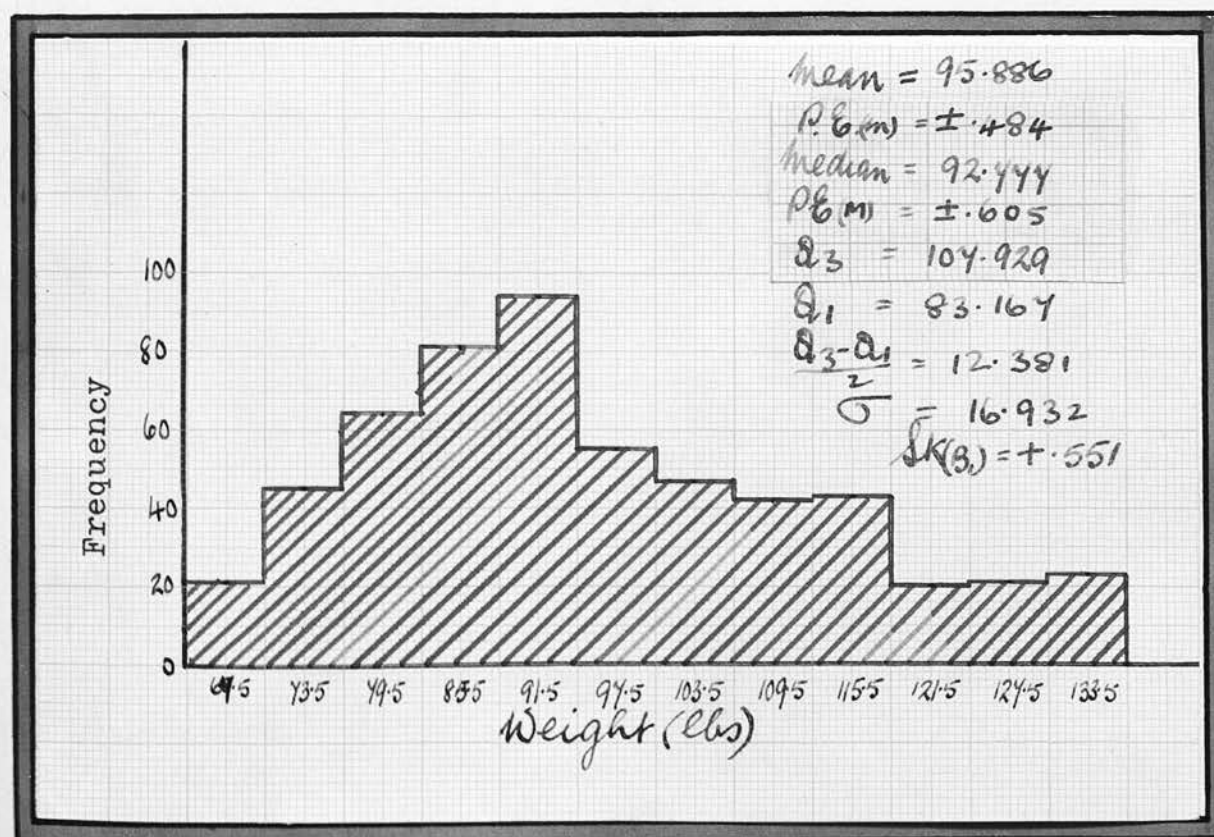 mean = 95.886
P.E.(m) = ±.484
Median = 92.777
P.E.(M) = ±.605
Q3 = 107.929
Q1 = 83.167
Q3-Q1
2
= 12.381
σ = 16.932
SK(B1) = +.551
100
80
60
40
20
0
Frequency
67.5 73.5 79.5 85.5 91.5 97.5 103.5 109.5 115.5 121.5 127.5 133.5
Weight (lbs)